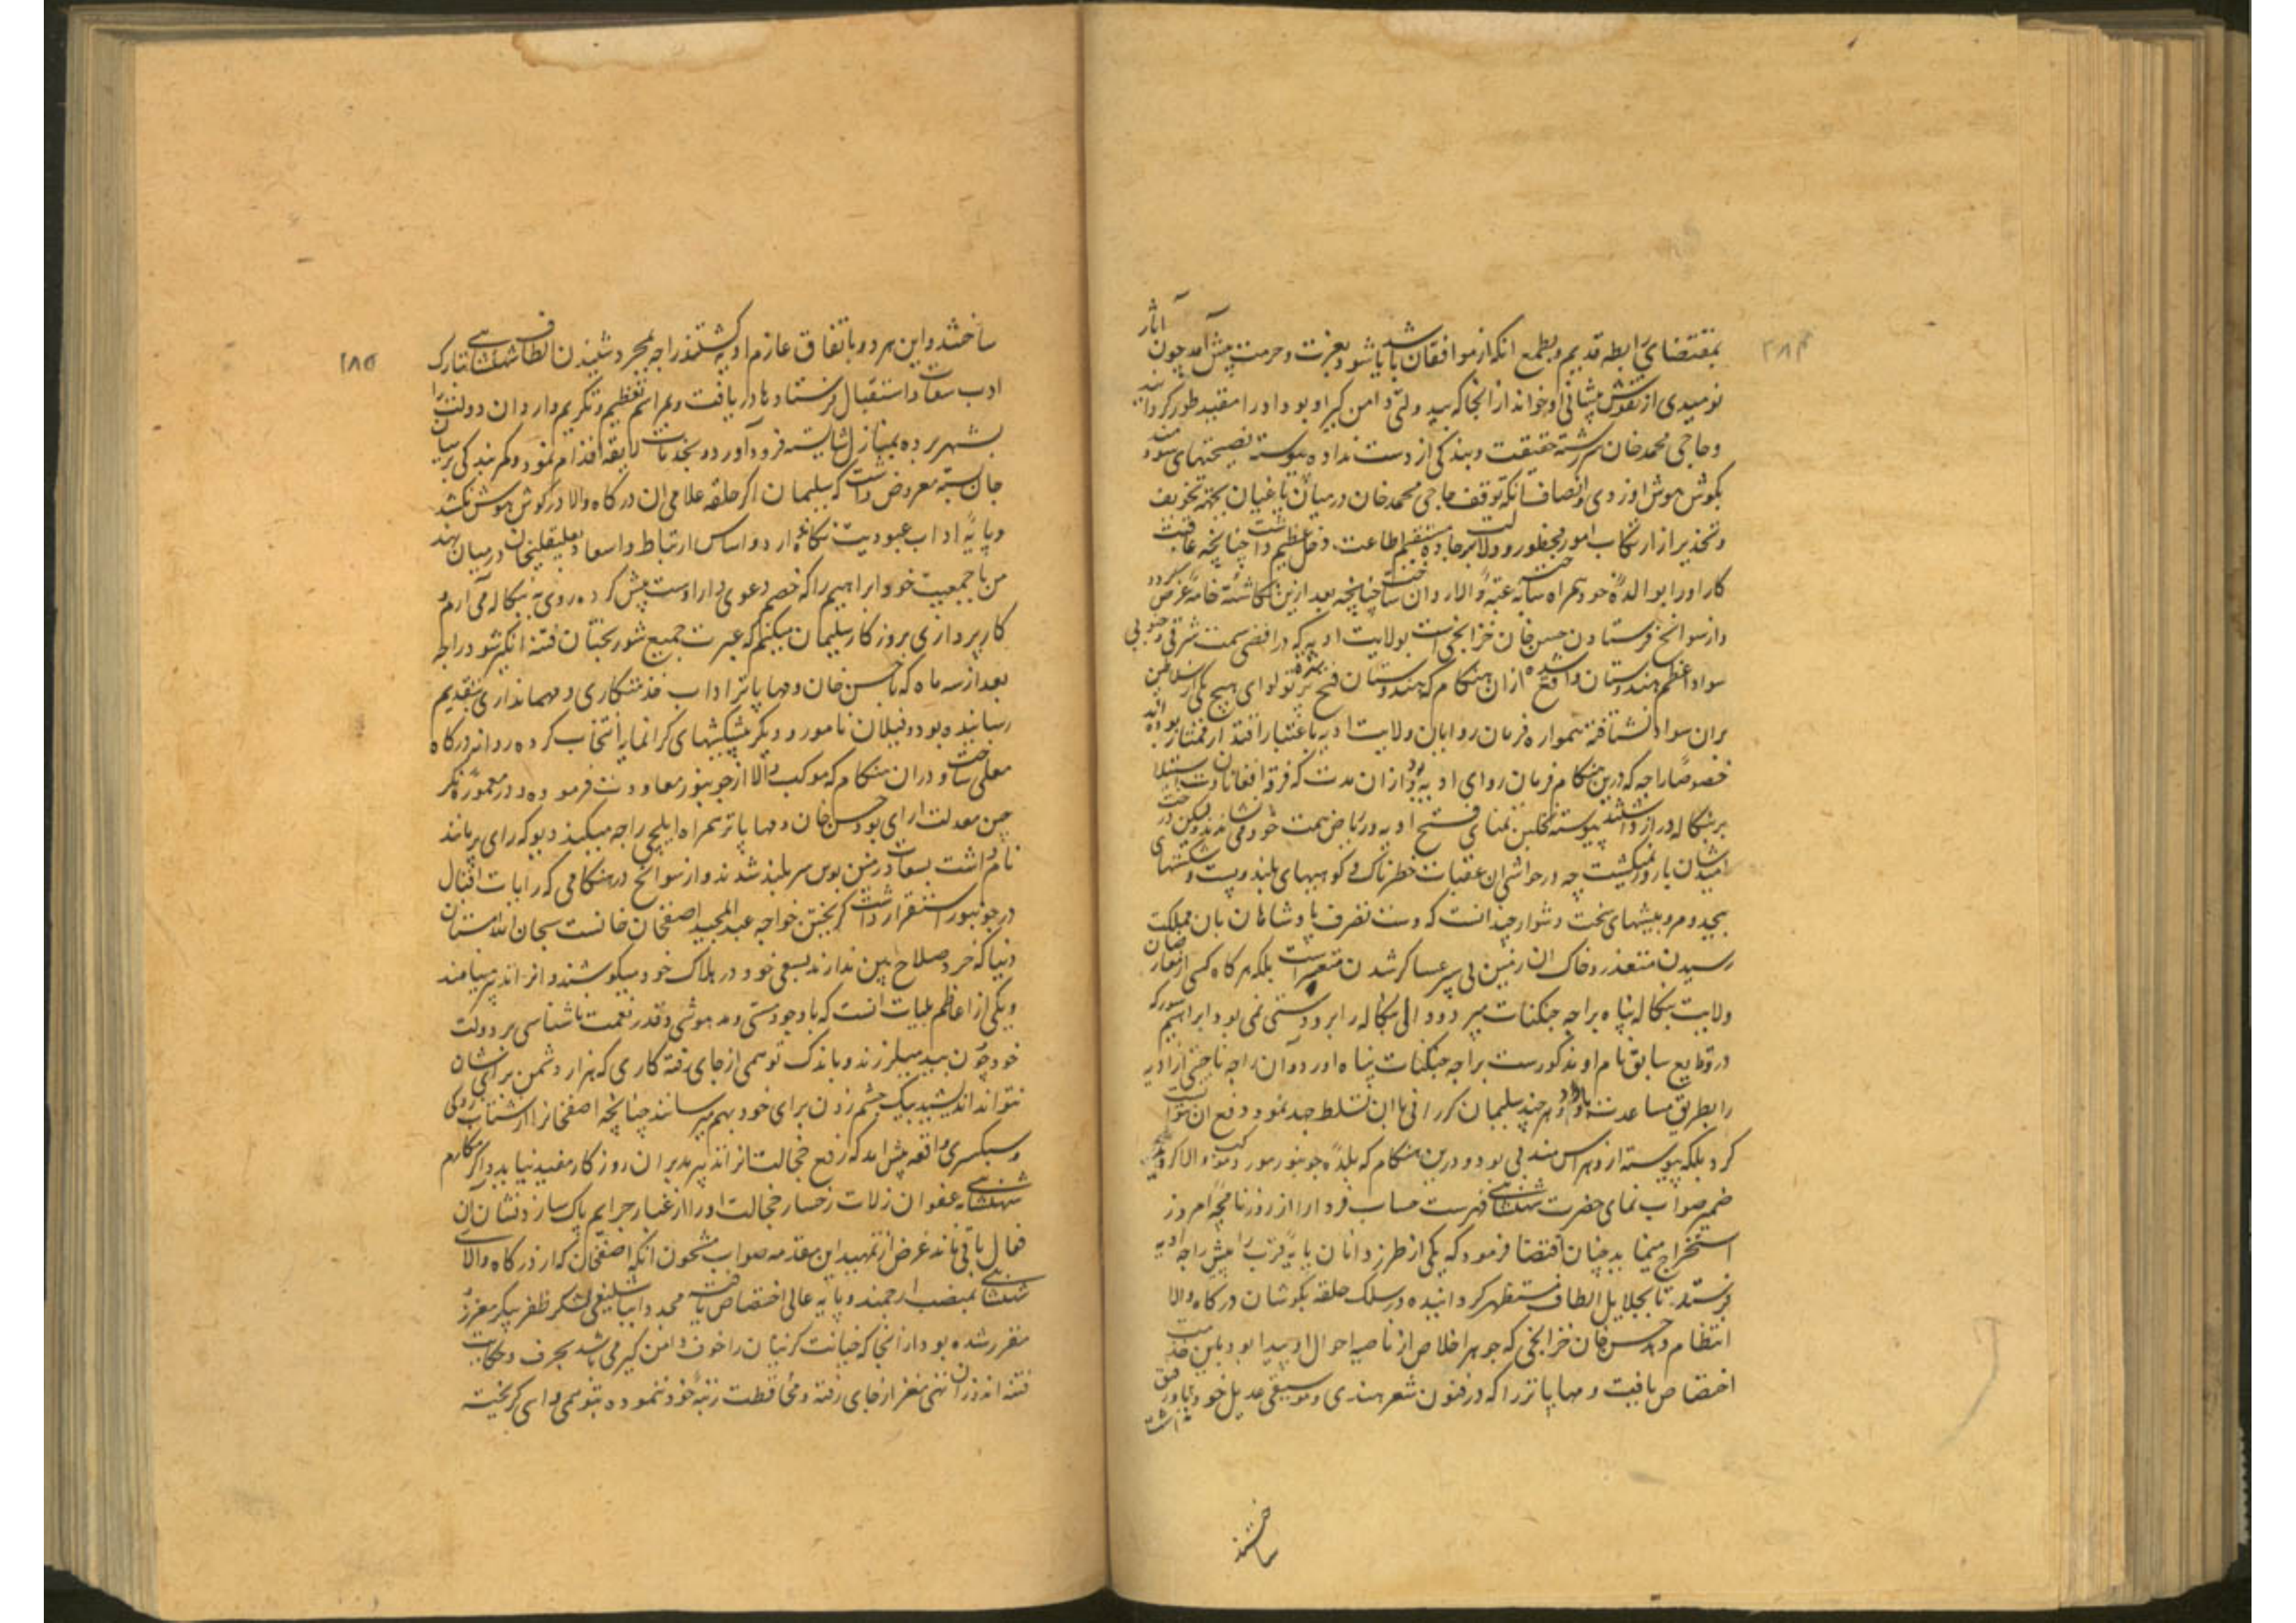 بمقتضای رابطه قدیم و بطمع انکه از موافقان باشد یا شود بعزت و حرمت پیش آمد چون آثار
نومیدی از نقوش پیشانی او خواند از انجا که بیدولتی دامن کیر او بود او را مقید طور کردانید
و حاجی محمد خان سررشته حقیقت و بندکی از دست نداده پیوسته نصیحتهای سودمند
بکوش هوش او زدی و انصاف انکه توقف حاجی محمد خان در میان یاغیان بجهة تخویف
و تحذیر از ارتکاب امور محظوره و دلالت بر جاده مستقیم اطاعت دخل عظیم داشت چنانچه عاقبت
کار او را با والده خود همراه ساخته بعتبه والا روان ساخت چنانچه بعد ازین نکاشته خامه عرض کردد
و از سوانح فرستادن حسن خان خزانچی است بولایت ادیسه که در اقصی سمت شرقی و جنوبی
سواد اعظم هندوستان واقع شده از ان هنکام که هندوستان فتح شده پرتو لوای هیچ یکی از سلاطین
بران سواد نشتافته همواره فرمان روایان ولایت ادیسه باعتبار اقتدار ممتاز بوده اند
خصوصا راجه که درین هنکام فرمان روای ادیسه بود و ازان مدت که فرقه افغانان دست استیلا
بر بنکاله دراز داشتند پیوسته نخلبن تمنای فتح ادیسه در ریاض همت خود می نشاندند ولیکن درخت
امید شان بارور نمیکشت چه در حواشی ان عقبات خطرناک و کوههای بلند و پست و شکستهای
بیحد و مر و بیشهای سخت دشوار چندانست که دست تصرف پادشاهان بان مملکت
رسیدن متعذر و خاک ان زمین پی سپر عساکر شدن متعسر است بلکه هر کاه کسی از معارضان
ولایت بنکاله پناه براجه جکنات میبرد والی بنکاله را برو دستی نمی بود ابراهیم سور که
در وقایع سابق نام او مذکورست براجه جکنات پناه اورد و ان راجه ناحیتی از ادیسه
را بطریق مساعدت باو داد و هر چند سلیمان کررانی با ان تسلط جهد نمود دفع ان نتوانست
کرد بلکه پیوسته ازو هراسمند می بود و درین هنکام که بلده جونپور مورد موکب والا کردید
ضمیر صواب نمای حضرت شهنشاهی که فهرست حساب فردا را از روزنامجه امروز
استخراج مینماید چنان اقتضا فرمود که یکی از طرز دانان پایه قرب را پیش راجه ادیسه
فرستند تا بجلایل الطاف مستظهر کردانیده در سلک حلقه بکوشان درکاه والا
انتظام دهد حسن خان خزانچی که جوهر اخلاص از ناصیه احوال او پیدا بود باین خدمت
اختصاص یافت و مهاپاتر را که در فنون شعر هندی و موسیقی عدیل خود نداشت رفیق او
ساختند
ساختند و این هر دو باتفاق عازم ادیسه کشتند راجه بمجرد شنیدن الطاف شهنشاهی تبارک
ادب سعادت استقبال فرستادها دریافت و بمراسم تعظیم و تکریم واردان دولت را
بشهر برده بمنازل شایسته فرود آورد و بخدمات لایقه اقدام نمود و کمر بندکی بر میان
جان بسته معروض داشت که سلیمان اکر حلقه غلامی ان درکاه والا در کوش هوش نکشد
و پایه اداب عبودیت نکاه ندارد و اساس ارتباط و اسعاد بعلیقلیخان در میان نهد
من با جمعیت خود ابراهیم را که خصم دعوی دار اوست پیش کرده روی به بنکاله می آرم و
کارپردازی بروز کار سلیمان میکنم که عبرت جمیع شوربختان فتنه انکیز شود راجه
بعد از سه ماه که با حسن خان و مهاپاتر اداب خدمتکاری و مهمانداری بتقدیم
رسانیده بود و فیلان نامور و دیکر پیشکشهای کرانمایه انتخاب کرده روانه درکاه
معلی ساخت و دران هنکام که موکب والا از جونپور معاودت فرموده در معموره نکر
چین معدلت ارای بود حسن خان و مهاپاتر همراه ایلچی راجه میکند دیو که رای پرمانند
نام داشت بسعادت زمین بوس سربلند شدند و از سوانح در هنکامی که رایات اقبال
در جونپور استقرار داشت کریختن خواجه عبد المجید اصفخان خانست سبحان الله مستان
دنیا که خرد صلاح بین ندارند بسعی خود در هلاک خود میکوشند و انرا تدبیر مینامند
و یکی از اعاظم بلیات انست که باوجود مستی و مدهوشی و قدر نعمت ناشناسی بر دولت
خود چون بید میلرزند و باندک توهمی از جای رفته کاری که هزار دشمن برای شان
نتواند اندیشید بیک چشم زدن برای خود بهم میرسانند چنانچه اصفخانرا از شتاب زدکی
و سبکسری واقعه پیش امد که رفع خجالت انرا تدبیر مدبران روزکار مفید نیاید و اکر مکارم
شهنشاهی بعفو ان زلات رخسار خجالت او را از غبار جرایم پاک سازد نشان ان
فعال باقی ماند غرض از تمهید این مقدمه صواب مشحون انکه اصفخان که از درکاه والای
شهنشاهی بمنصب ارجمند و پایه عالی اختصاص یافته مجددا بیساقیشی لشکر ظفر پیکر معزز و
مقرر شده بود ازانجا که خیانت کرنیان را خوف دامن کیر می باشد بحرف و حکایت
فتنه اندوزان تهی مغز از جای رفته و محافظت رتبه خود ننموده بتوهمی واهی کریخته
۲۸۴
۱۸۵